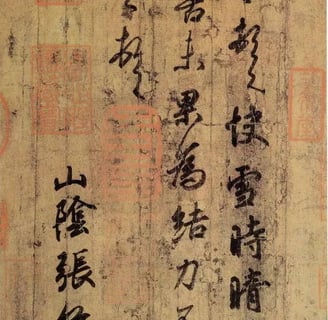 頓首快雪時晴
善未果為結力不
頓首
山陰張